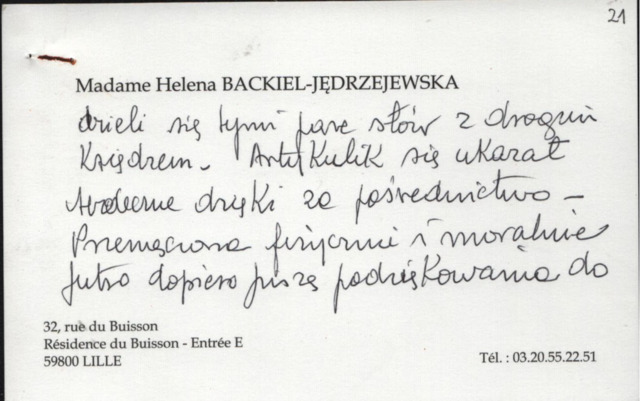 21
Madame Helena BACKIEL-JĘDRZEJEWSKA
dzieli się tymi parę słów z drogim
Księdzem. Artykulik się ukazał
serdeczne dzięki za pośrednictwo –
Przemęczona fizycznie i moralnie
jutro dopiero piszę podziękowania do
32, rue du Buisson
Résidence du Buisson - Entrée E
59800 LILLE
Tél. : 03.20.55.22.51